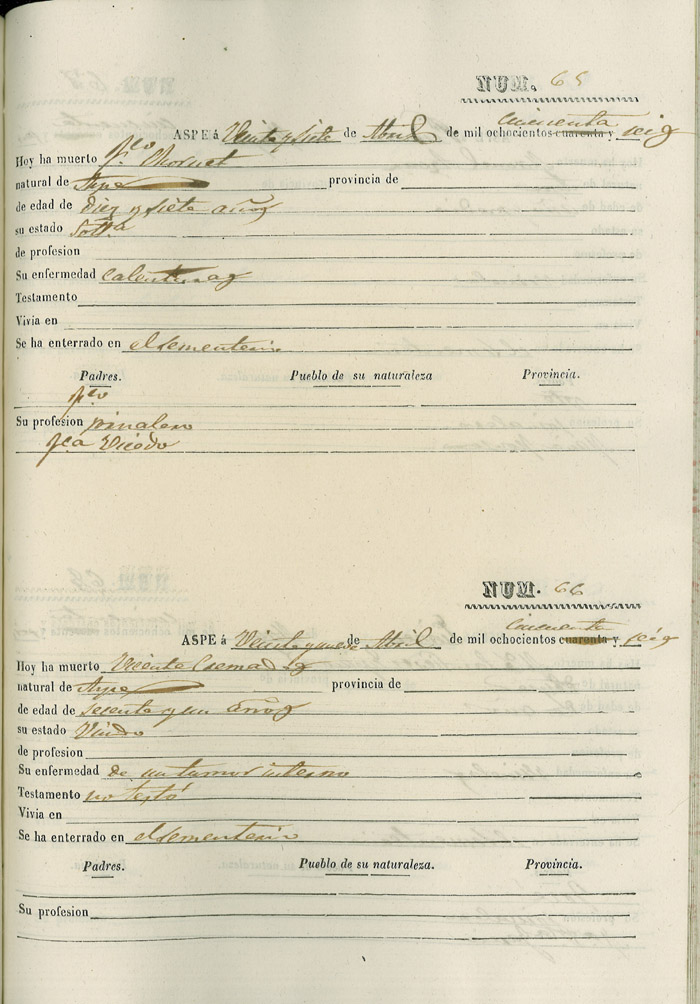 NUM. 65
cincuenta
ASPE á Veinte y siete de Abril de mil ochocientos cuarenta y seis
Hoy ha muerto Fco
natural de Aspe provincia de
de edad de diez y siete años
su estado Soltra
de profesion
Su enfermedad calenturas
Testamento
Vivia en
Se ha enterrado en el sementerio
Padres. Pueblo de su naturaleza Provincia.
Fco
Su profesion
Fca
NUM. 66
cincuenta
ASPE á Veinte y nueve de Abril de mil ochocientos cuarenta y seis
Hoy ha muerto Vicente
natural de Aspe provincia de
de edad de sesenta y un años
su estado Viudo
de profesion
Su enfermedad de un tumor interno
Testamento no testó
Vivia en
Se ha enterrado en el sementerio
Padres. Pueblo de su naturaleza. Provincia.
Su profesion